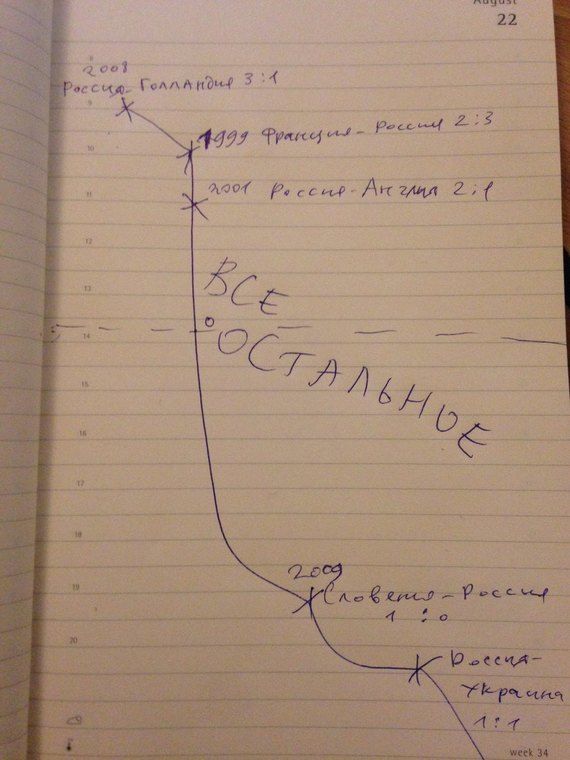 August
22
8
2008
Россия-Голландия 3:1
9
1999 Франция-Россия 2:3
10
2001 Россия-Англия 2:1
11
12
ВСЕ
13
0
14
ОСТАЛЬНОЕ
15
16
17
18
2009
19
Словения-Россия
1:0
20
Россия-
Украина
1:1
week 34